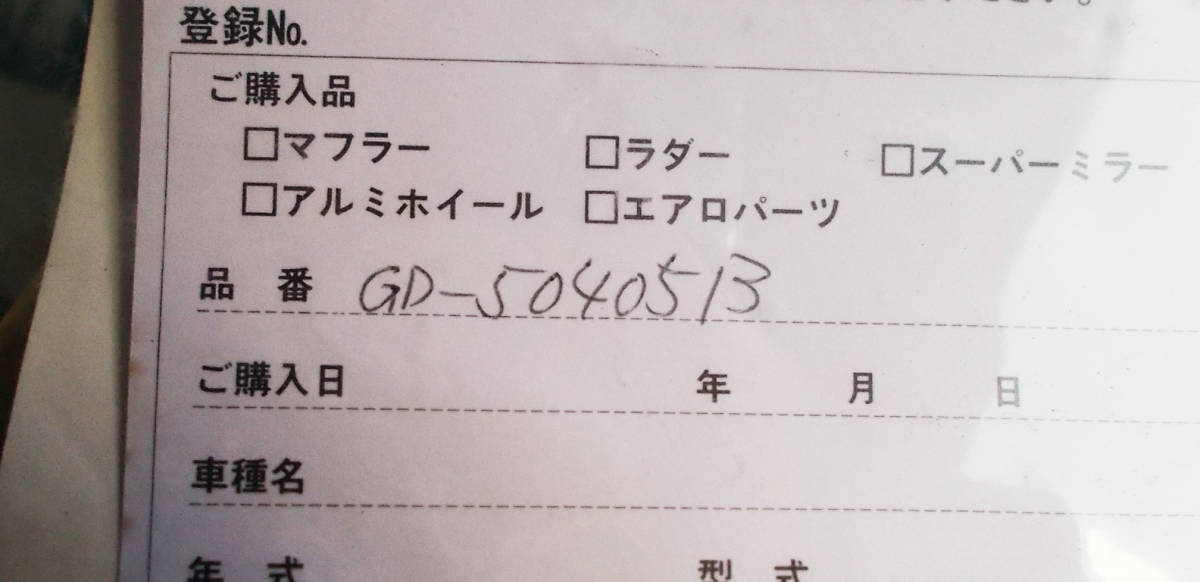 登録No.
ご購入品
□マフラー □ラダー □スーパーミラー
□アルミホイール □エアロパーツ
品 番 GD-5040513
ご購入日 年 月 日
車種名
年 式 型 式